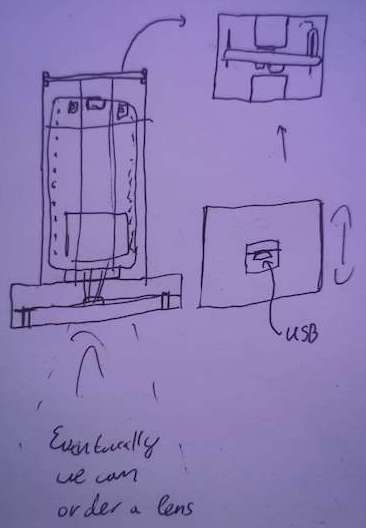 USB
Eventually
we can
order a lens